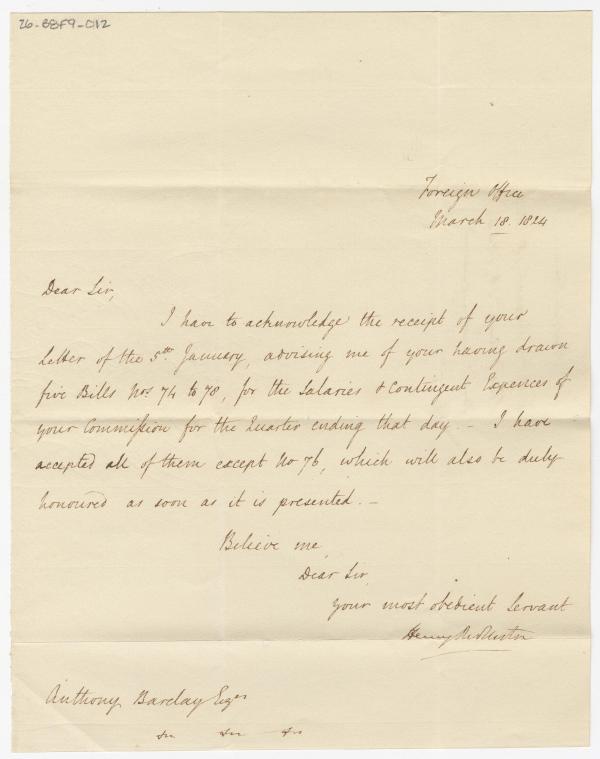 26-BBF9-C12
Foreign Office
March 18. 1824
Dear Sir,
I have to acknowledge the receipt of your
Letter of the 5th. January, advising me of your having drawn
five Bills Nos. 74 to 78, for the Salaries & Contingent Expences of
your Commission for the Quarter ending that day. - I have
accepted all of them except No 76, which will also be duly
honoured as soon as it is presented. -
Believe me,
Dear Sir,
your most obedient Servant
Henry
Anthony Barclay Esqre